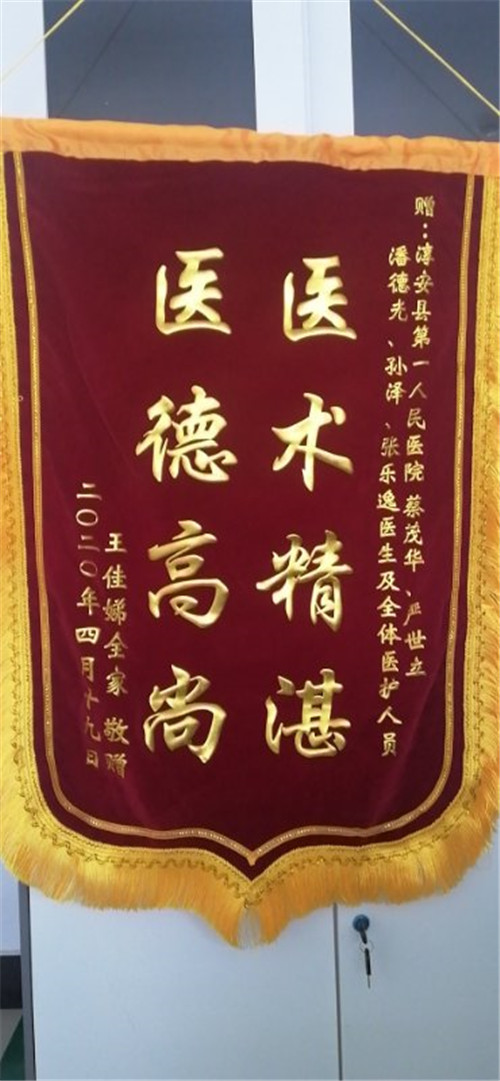 赠：淳安县第一人民医院蔡茂华、严世立
潘德光、孙泽、张乐逸医生及全体医护人员
医术精湛
医德高尚
王佳娣全家 敬赠
二〇二〇年四月十九日